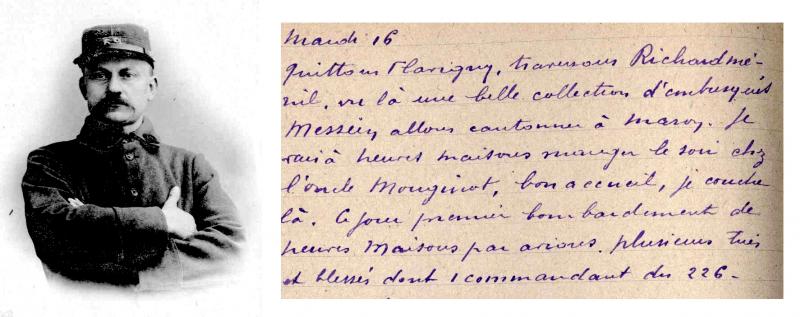 Mardi 16
quittons Flavigny, traversons Richardmé-
nil, vu là une belle collection d'embusqués
Messein, allons cantonner à Maron. Je
vais à heures maisons manger le soir chez
l'oncle Mougenot, bon accueil, je couche
là. Ce jour premier bombardement de
heures Maisons par avions. plusieurs tués
et blessés dont 1 commandant du 226-